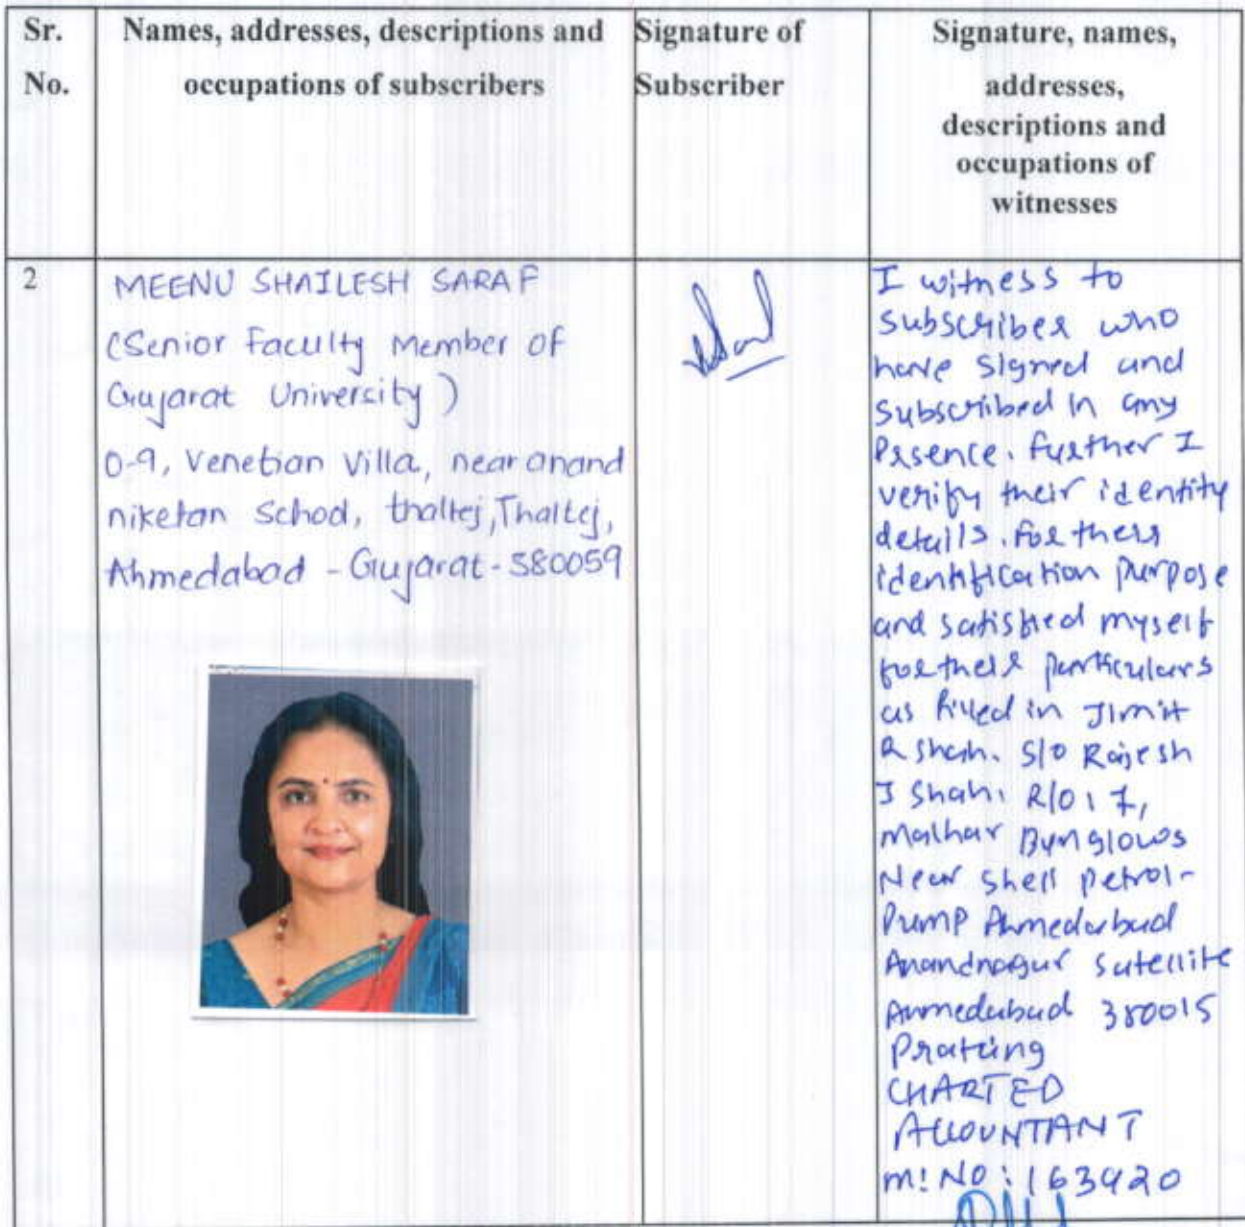 Sr.
No.
Names, addresses, descriptions and
occupations of subscribers
Signature of
Subscriber
Signature, names,
addresses,
descriptions and
occupations of
witnesses
2
MEENU SHAILESH SARAF
(Senior Faculty Member of
Gujarat University)
O-9, Venetian Villa, near anand
niketan School, thaltej, Thaltej,
Ahmedabad - Gujarat - 380059
I witness to
subscriber who
have signed and
subscribed in my
Presence. Further I
verify their identity
details. for their
identification purpose
and satisfied myself
for their particulars
as filled in Jimit
R shah. S/o Rajesh
J Shah. R/o : 7,
Malhar Bunglows
Near Shell petrol-
Pump Ahmedabad
Anandnagar Satellite
Ahmedabad 380015
CHARTED
ACCOUNTANT
M! NO : 163920